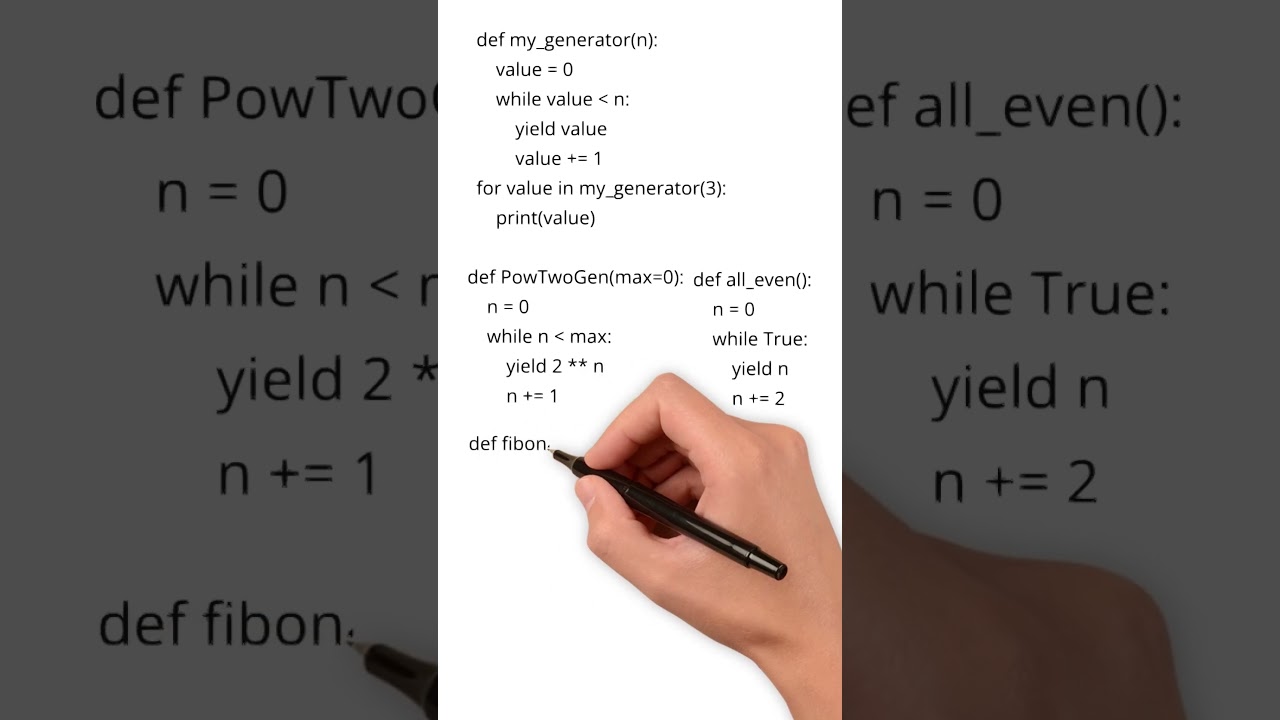 def my_generator(n):
value = 0
while value < n:
yield value
value += 1
for value in my_generator(3):
print(value)
def PowTwoGen(max=0):
n = 0
while n < max:
yield 2 ** n
n += 1
def all_even():
n = 0
while True:
yield n
n += 2
def fibon
def PowTwo
n = 0
while n <
yield 2 *
n += 1
def fibon
ef all_even():
n = 0
while True:
yield n
n += 2